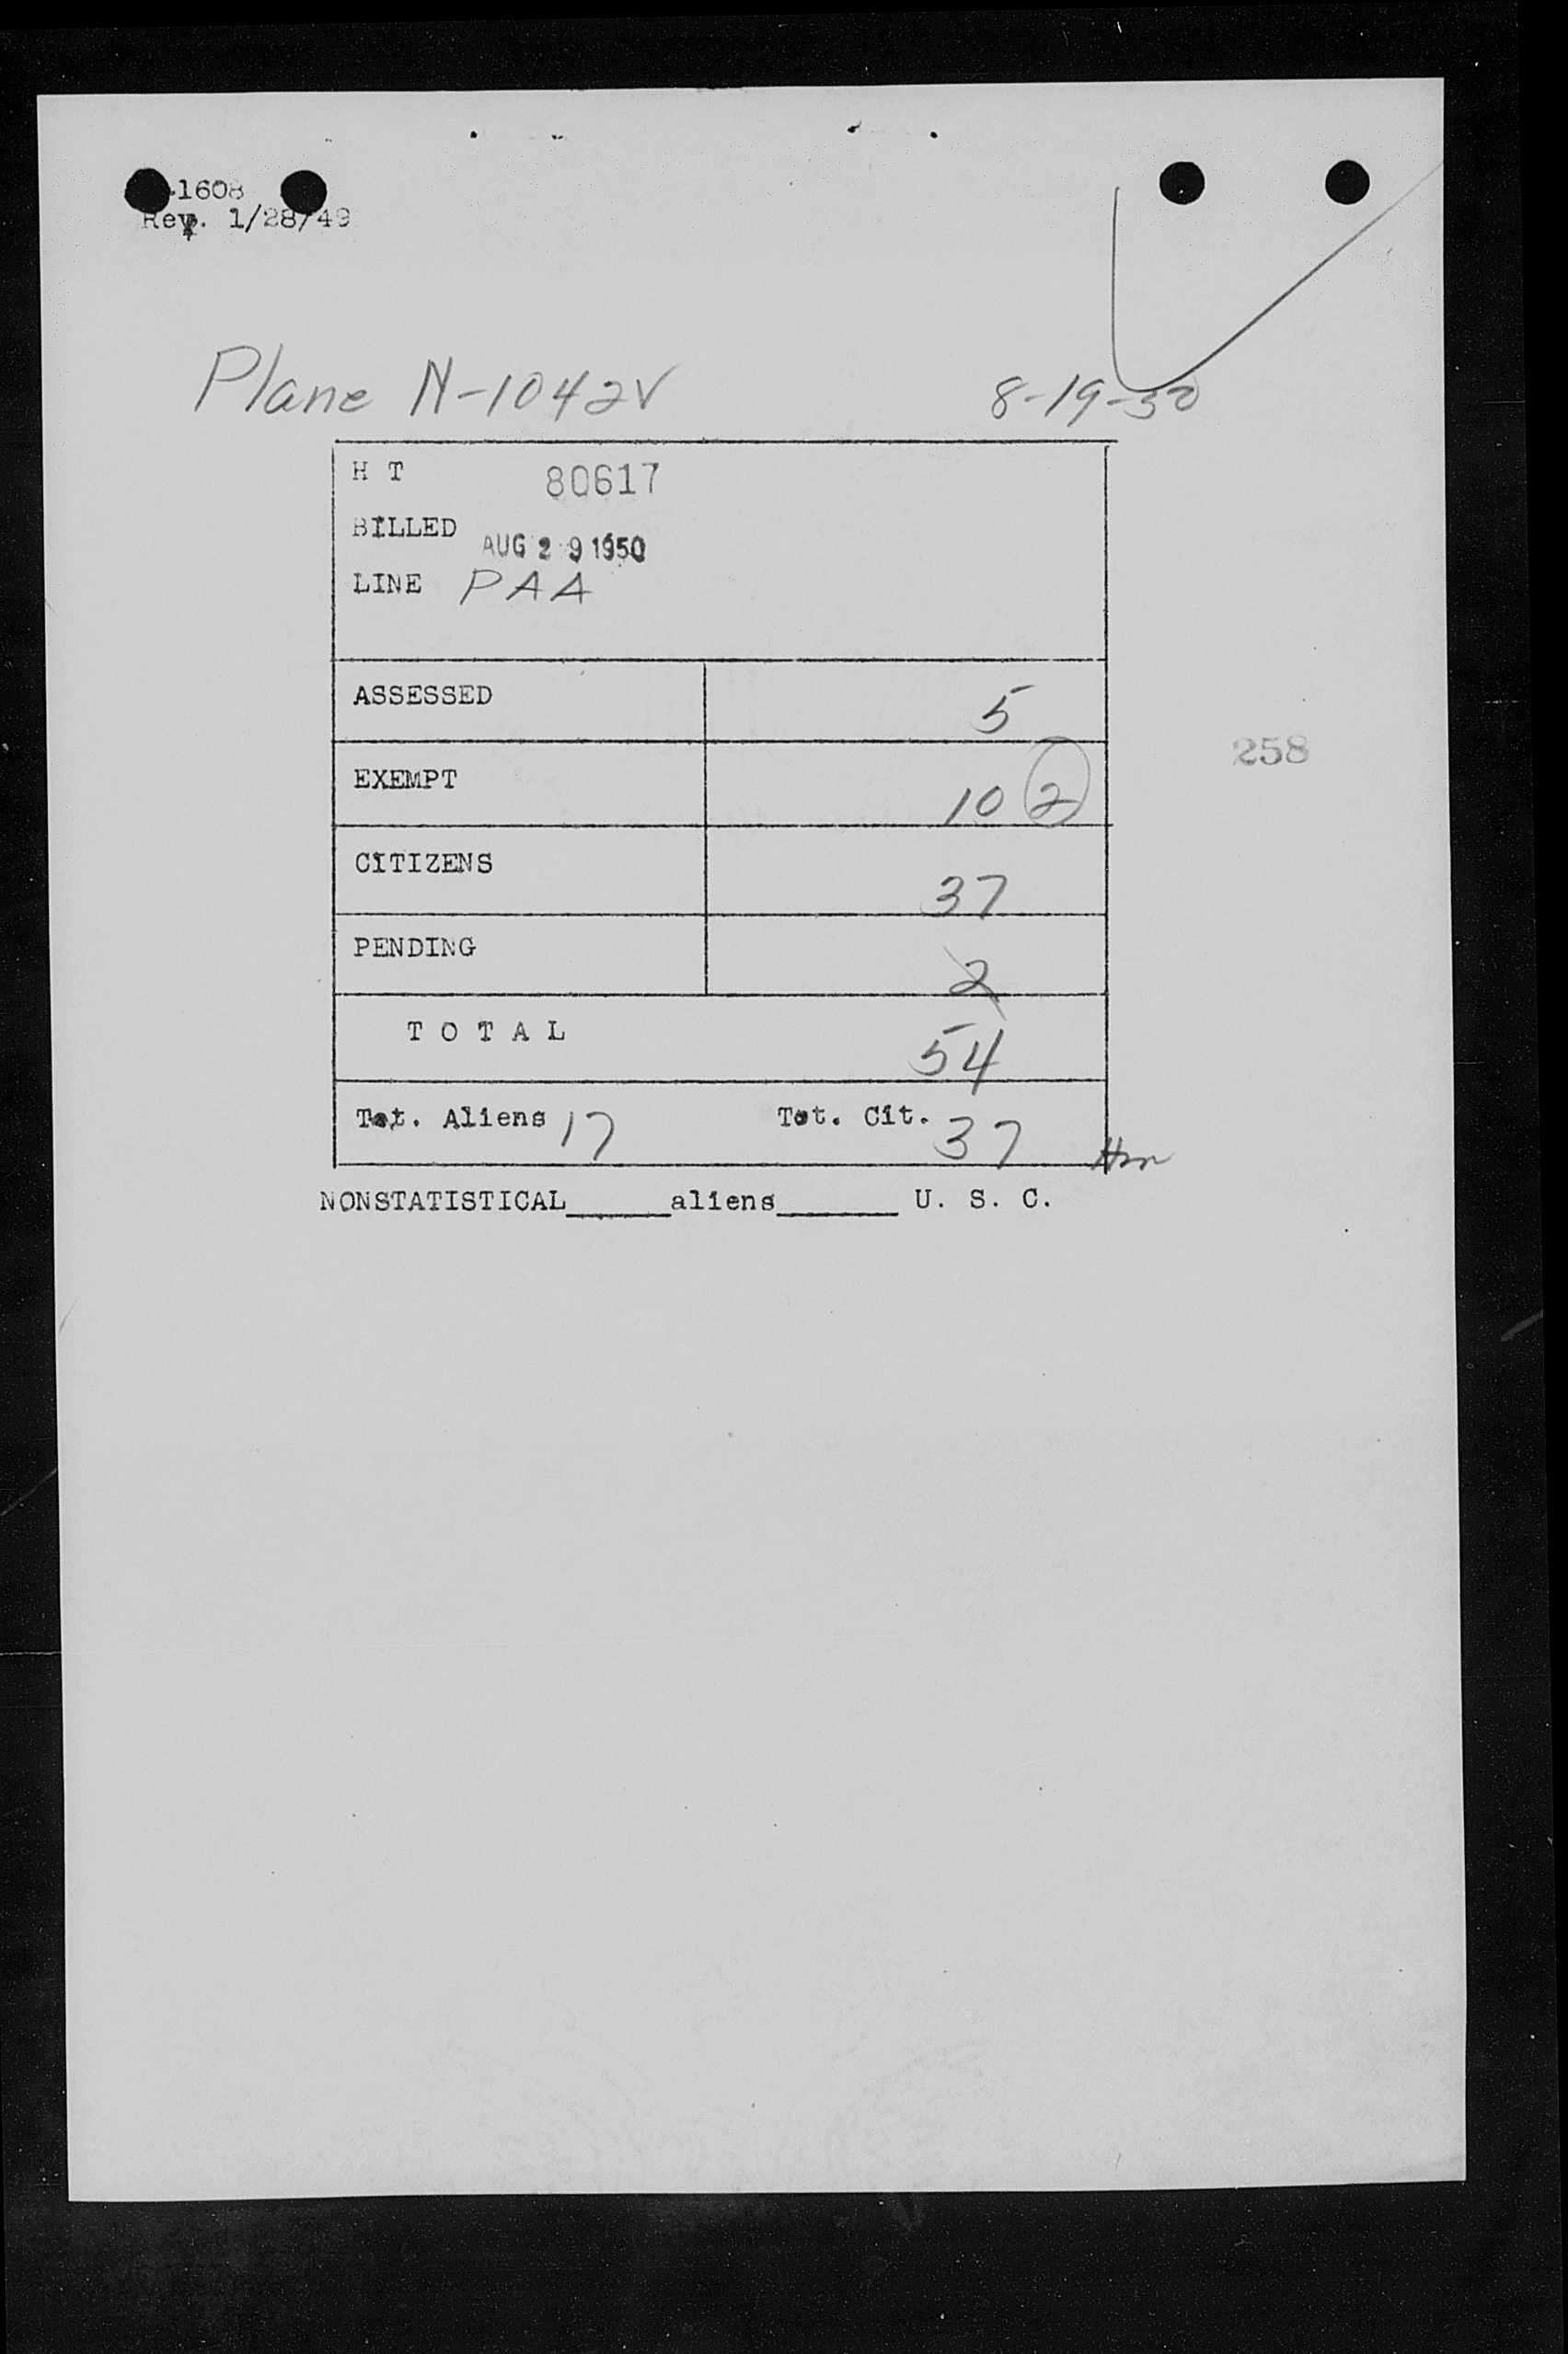 -1608
Rev. 1/28/49
Plane N-1042V 8-19-50
H T 80617
BILLED AUG 29 1950
LINE PAA
ASSESSED 5
EXEMPT 10 2
258
CITIZENS 37
PENDING 2
T O T A L 54
Tot. Aliens 17 Tot. Cit. 37
NONSTATISTICAL______aliens_______ U. S. C.